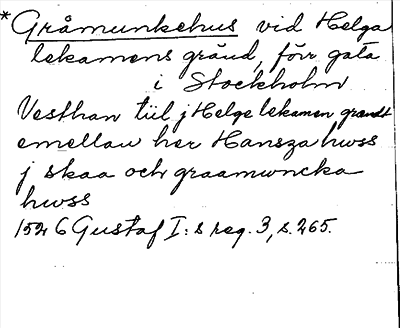 * Gråmunkehus vid Helga
lekamens gränd, förr gata
i Stockholm
Vesthan tiil j Helge lekamen grandt
emellan her Hansza hwss
j skaa och graamwncka
hwss
1526 Gustaf I:s reg. 3, s. 265.